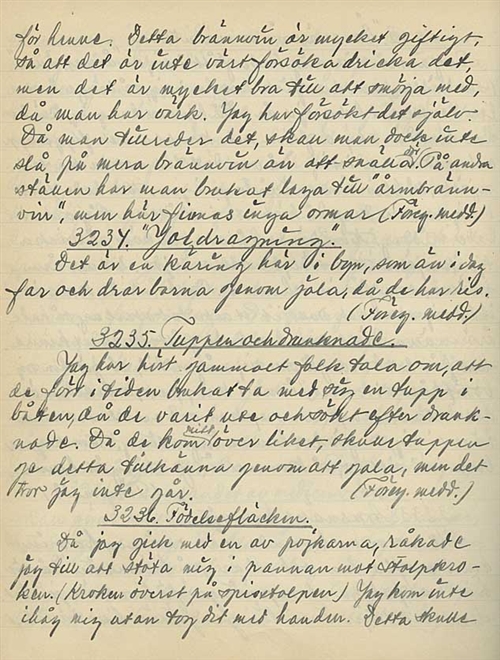 för henne. Detta brännvin är mycket giftigt,
så att det är inte värt försöka dricka det,
men det är mycket bra till att smörja med,
då man har värk. Jag har försökt det själv.
Då man tillreder det, skall man dock inte
slå på mera brännvin än att snällt. På andra
ställen har man brukat laga till "ormbränn-
vin", men här finnas inga ormar (Föreg. medd.)
3234. "Joldragning."
Det är en käring här i byn, som än i dag
far och drar barna genom jola, då de har ris.
(Föreg. medd.)
3235. Tuppen och drunknade.
Jag har hört gammalt folk tala om, att
de förr i tiden brukat ta med sig en tupp i
båten, då de varit ute och sökt efter drunk-
nade. Då de kom mitt över liket, skulle tuppen
ge detta tillkänna genom att gala, men det
tror jag inte går. (Föreg. medd.)
3236. Födelsefläcken.
Då jag gick med en av pojkarna, råkade
jag till att stöta mig i pannan mot stolpkro-
ken. (Kroken överst på spisstolpen) Jag kom inte
ihåg mig utan tog dit med handen. Detta skulle